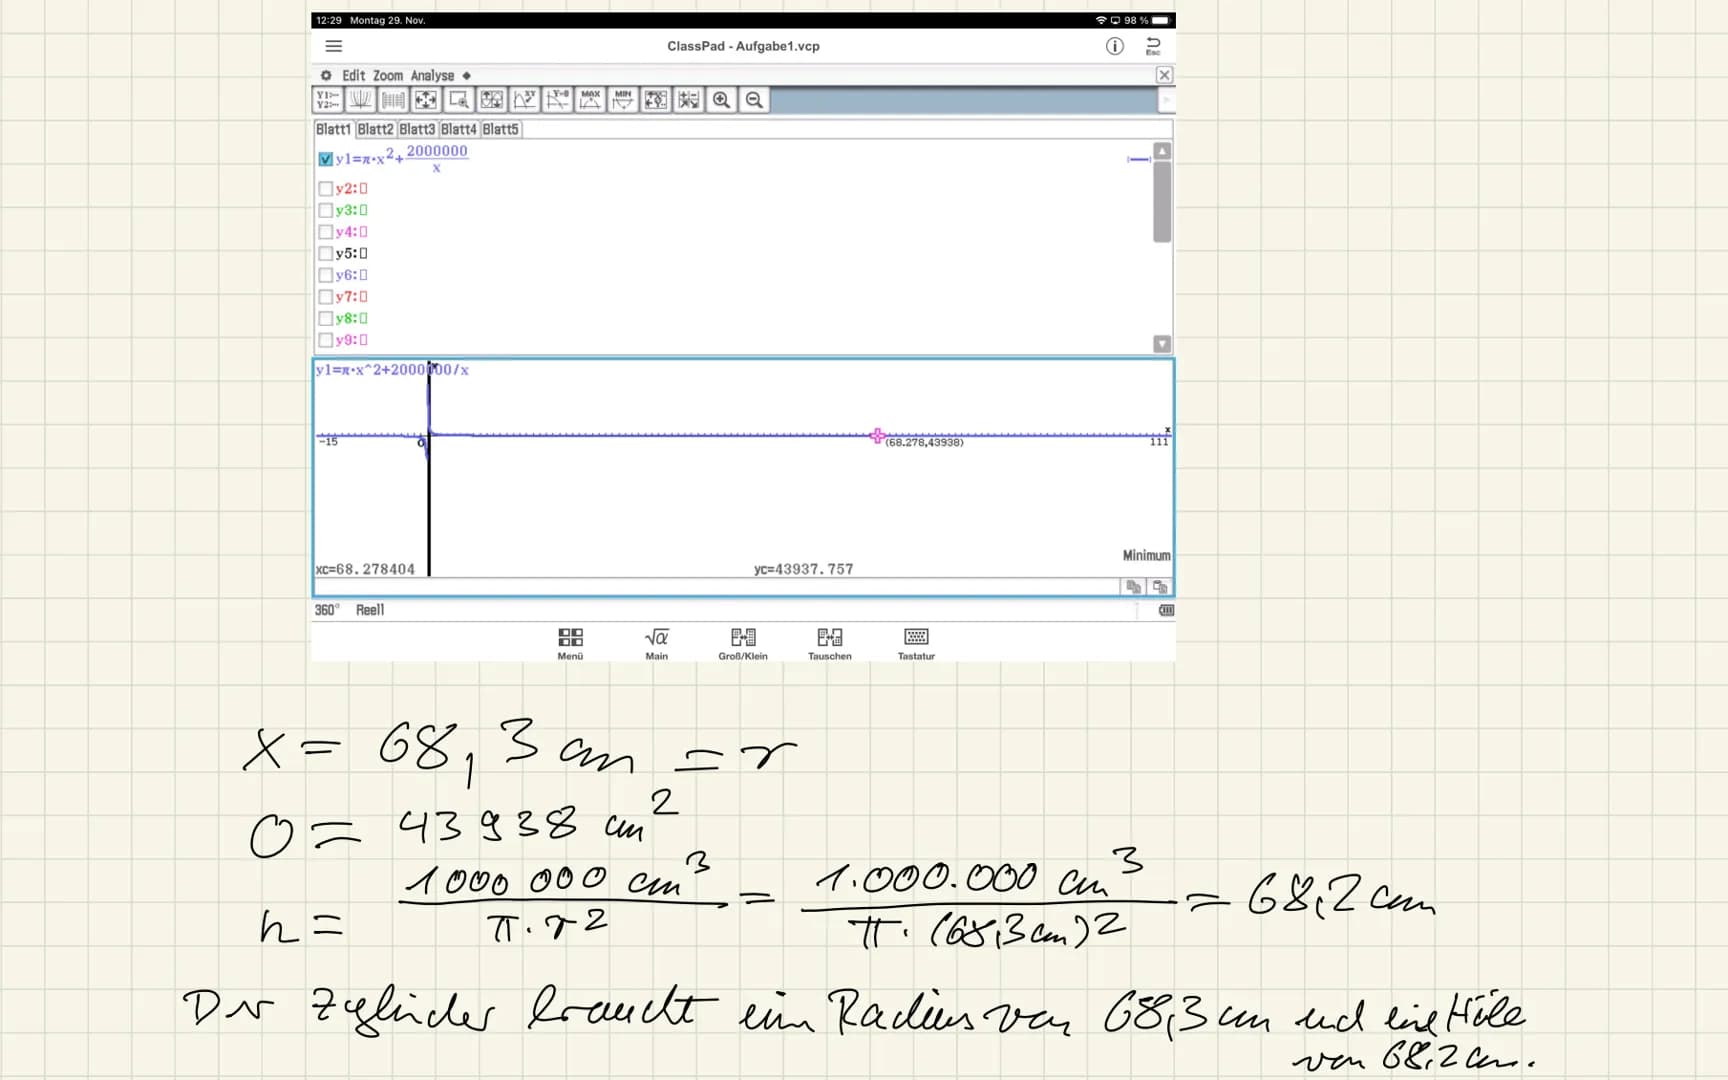 12:29 Montag 29. Nov. 98 %
ClassPad - Aufgabe1.vcp
Esc
Edit Zoom Analyse
Y1:--
Y2:--
XY Y=0 MAX MIN
Blatt1 Blatt2 Blatt3 Blatt4 Blatt5
y1=π·x²+2000000/x
y2:
y3:
y4:
y5:
y6:
y7:
y8:
y9:
y1=π·x^2+2000000/x
x
-15 0 (68.278,43938) 111
Minimum
xc=68.278404 yc=43937.757
360° Reell
√α
Menü Main Groß/Klein Tauschen Tastatur
x = 68,3 cm = r
O = 43 938 cm²
h = 1000 000 cm³ / π · r² = 1.000.000 cm³ / π · (68,3 cm)² = 68,2 cm
Der Zylinder braucht ein Radius von 68,3 cm und eine Höhe
von 68,2 cm.